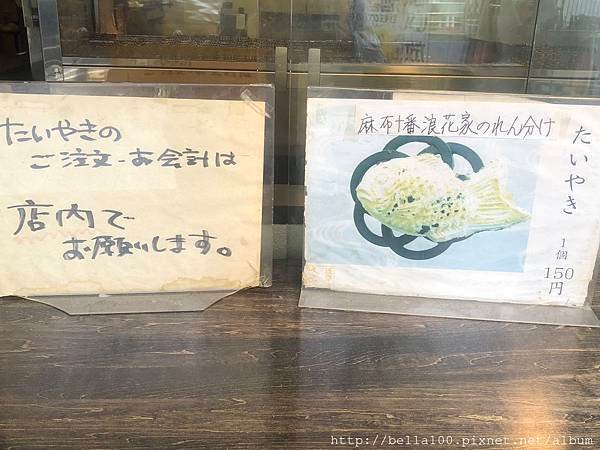 たいやきの
ご注文・お会計は
店内で
お願いします。
麻布十番浪花家のれん分け
たいやき
1個
150
円
http://bella100.pixnet.net/album